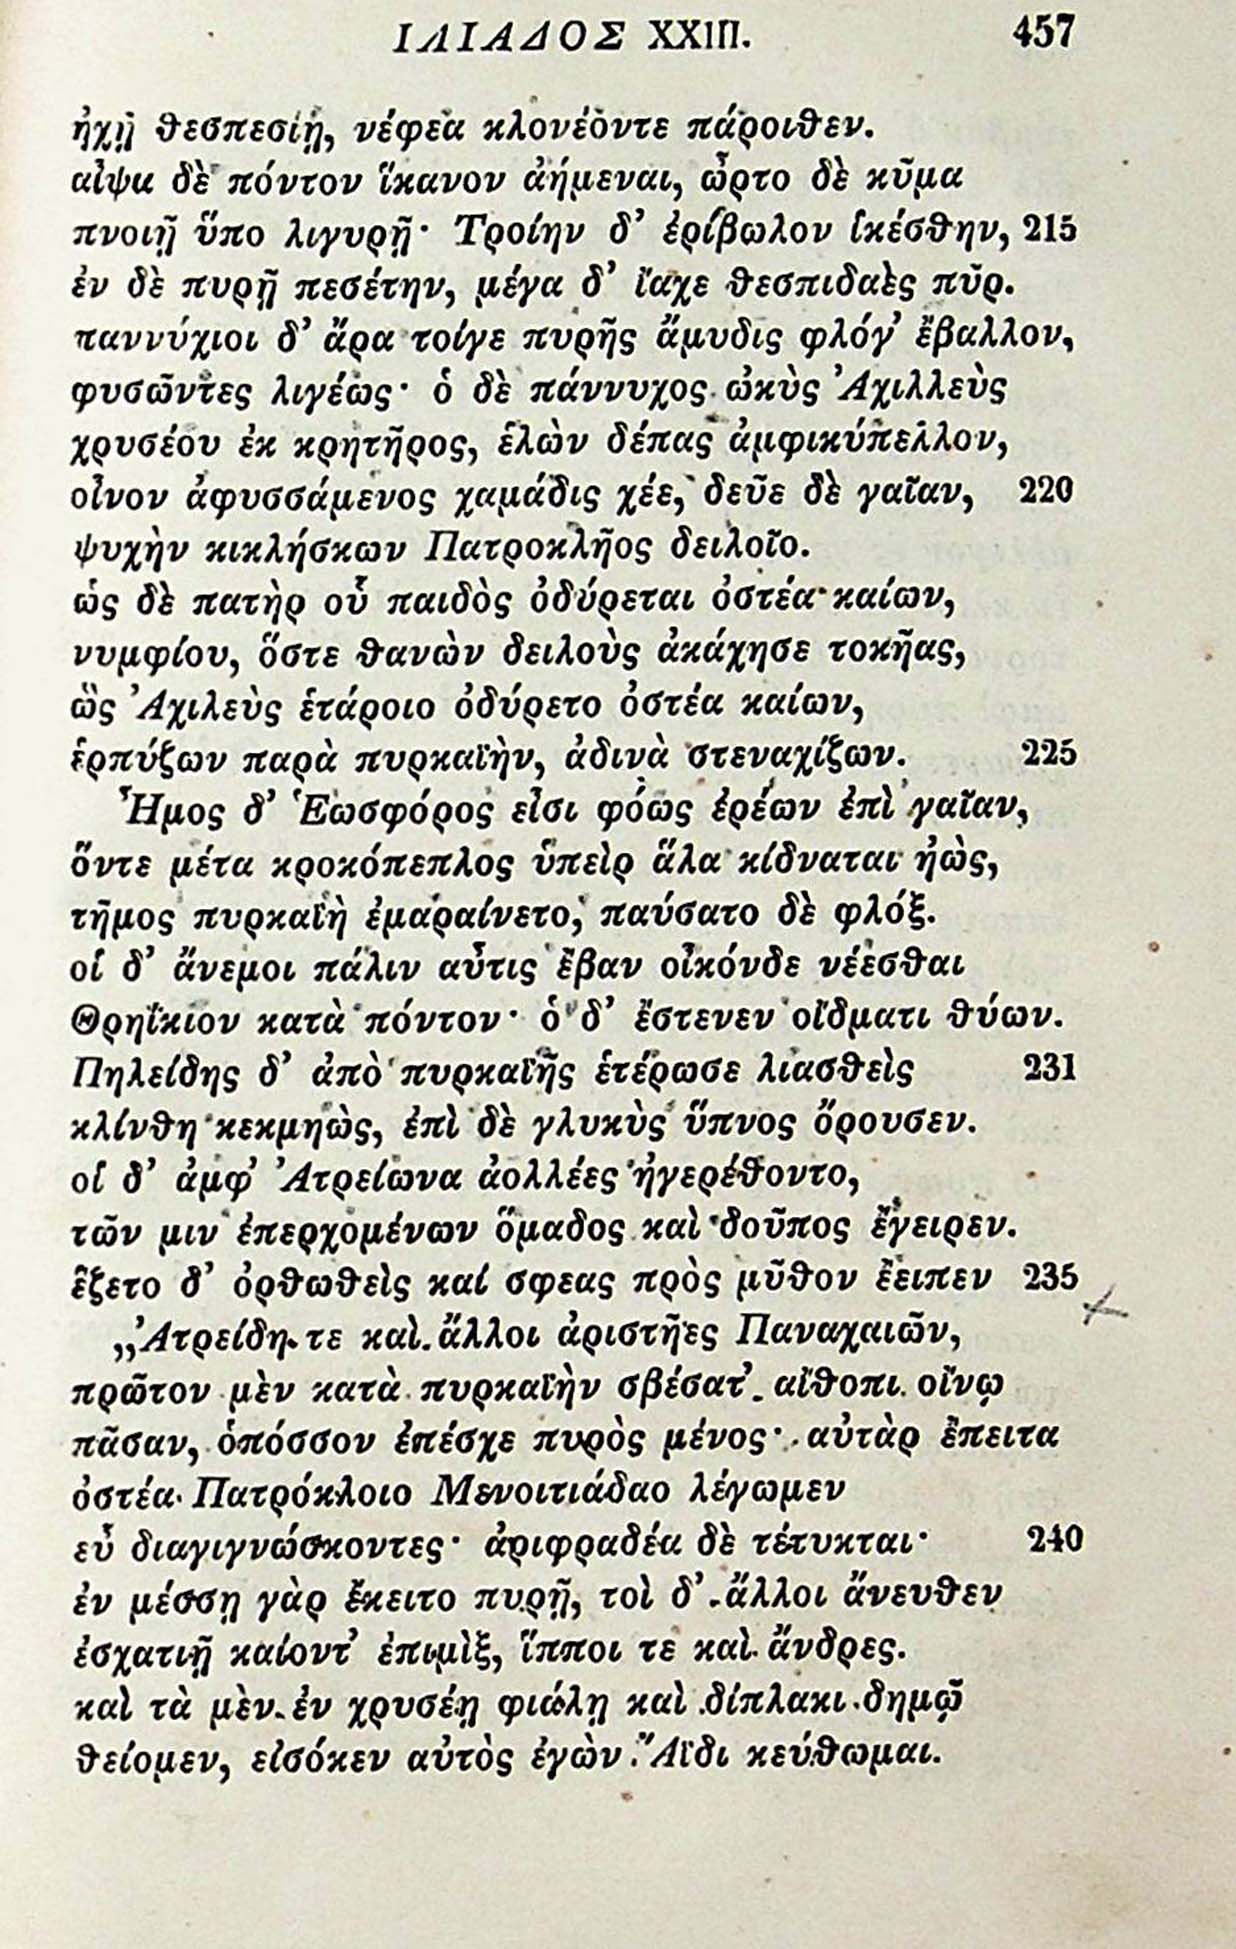 ΙΛΙΑΔΟΣ XXIII. 457
ἠχῇ θεσπεσίῃ, νέφεα κλονέοντε πάροιθεν.
αἶψα δὲ πόντον ἵκανον ἀήμεναι, ὦρτο δὲ κῦμα
πνοιῇ ὕπο λιγυρῇ· Τροίην δ’ ἐρίβωλον ἱκέσθην, 215
ἐν δὲ πυρῇ πεσέτην, μέγα δ’ ἴαχε θεσπιδαὲς πῦρ.
παννύχιοι δ’ ἄρα τοίγε πυρῆς ἄμυδις φλόγ’ ἔβαλλον,
φυσῶντες λιγέως· ὁ δὲ πάννυχος ὠκὺς Ἀχιλλεὺς
χρυσέου ἐκ κρητῆρος, ἑλὼν δέπας ἀμφικύπελλον,
οἶνον ἀφυσσάμενος χαμάδις χέε, δεῦε δὲ γαῖαν, 220
ψυχὴν κικλήσκων Πατροκλῆος δειλοῖο.
ὡς δὲ πατὴρ οὗ παιδὸς ὀδύρεται ὀστέα καίων,
νυμφίου, ὅστε θανὼν δειλοὺς ἀκάχησε τοκῆας,
ὣς Ἀχιλεὺς ἑτάροιο ὀδύρετο ὀστέα καίων,
ἑρπύζων παρὰ πυρκαϊὴν, ἀδινὰ στεναχίζων. 225
Ἦμος δ’ Ἑωσφόρος εἶσι φόως ἐρέων ἐπὶ γαῖαν,
ὅντε μέτα κροκόπεπλος ὑπεὶρ ἅλα κίδναται ἠὼς,
τῆμος πυρκαϊὴ ἐμαραίνετο, παύσατο δὲ φλόξ.
οἱ δ’ ἄνεμοι πάλιν αὖτις ἔβαν οἶκόνδε νέεσθαι
Θρηΐκιον κατὰ πόντον· ὁ δ’ ἔστενεν οἴδματι θύων.
Πηλείδης δ’ ἀπὸ πυρκαϊῆς ἑτέρωσε λιασθεὶς 231
κλίνθη κεκμηὼς, ἐπὶ δὲ γλυκὺς ὕπνος ὄρουσεν.
οἱ δ’ ἀμφ’ Ἀτρείωνα ἀολλέες ἠγερέθοντο,
τῶν μιν ἐπερχομένων ὅμαδος καὶ δοῦπος ἔγειρεν.
ἕζετο δ’ ὀρθωθεὶς καί σφεας πρὸς μῦθον ἔειπεν 235
„Ἀτρείδη τε καὶ ἄλλοι ἀριστῆες Παναχαιῶν,
πρῶτον μὲν κατὰ πυρκαϊὴν σβέσατ’ αἴθοπι οἴνῳ
πᾶσαν, ὁπόσσον ἐπέσχε πυρὸς μένος· αὐτὰρ ἔπειτα
ὀστέα Πατρόκλοιο Μενοιτιάδαο λέγωμεν
εὖ διαγιγνώσκοντες· ἀριφραδέα δὲ τέτυκται· 240
ἐν μέσσῃ γὰρ ἔκειτο πυρῇ, τοὶ δ’ ἄλλοι ἄνευθεν
ἐσχατιῇ καίοντ’ ἐπιμὶξ, ἵπποι τε καὶ ἄνδρες.
καὶ τὰ μὲν ἐν χρυσέῃ φιάλῃ καὶ δίπλακι δημῷ
θείομεν, εἰσόκεν αὐτὸς ἐγὼν Ἄϊδι κεύθωμαι.